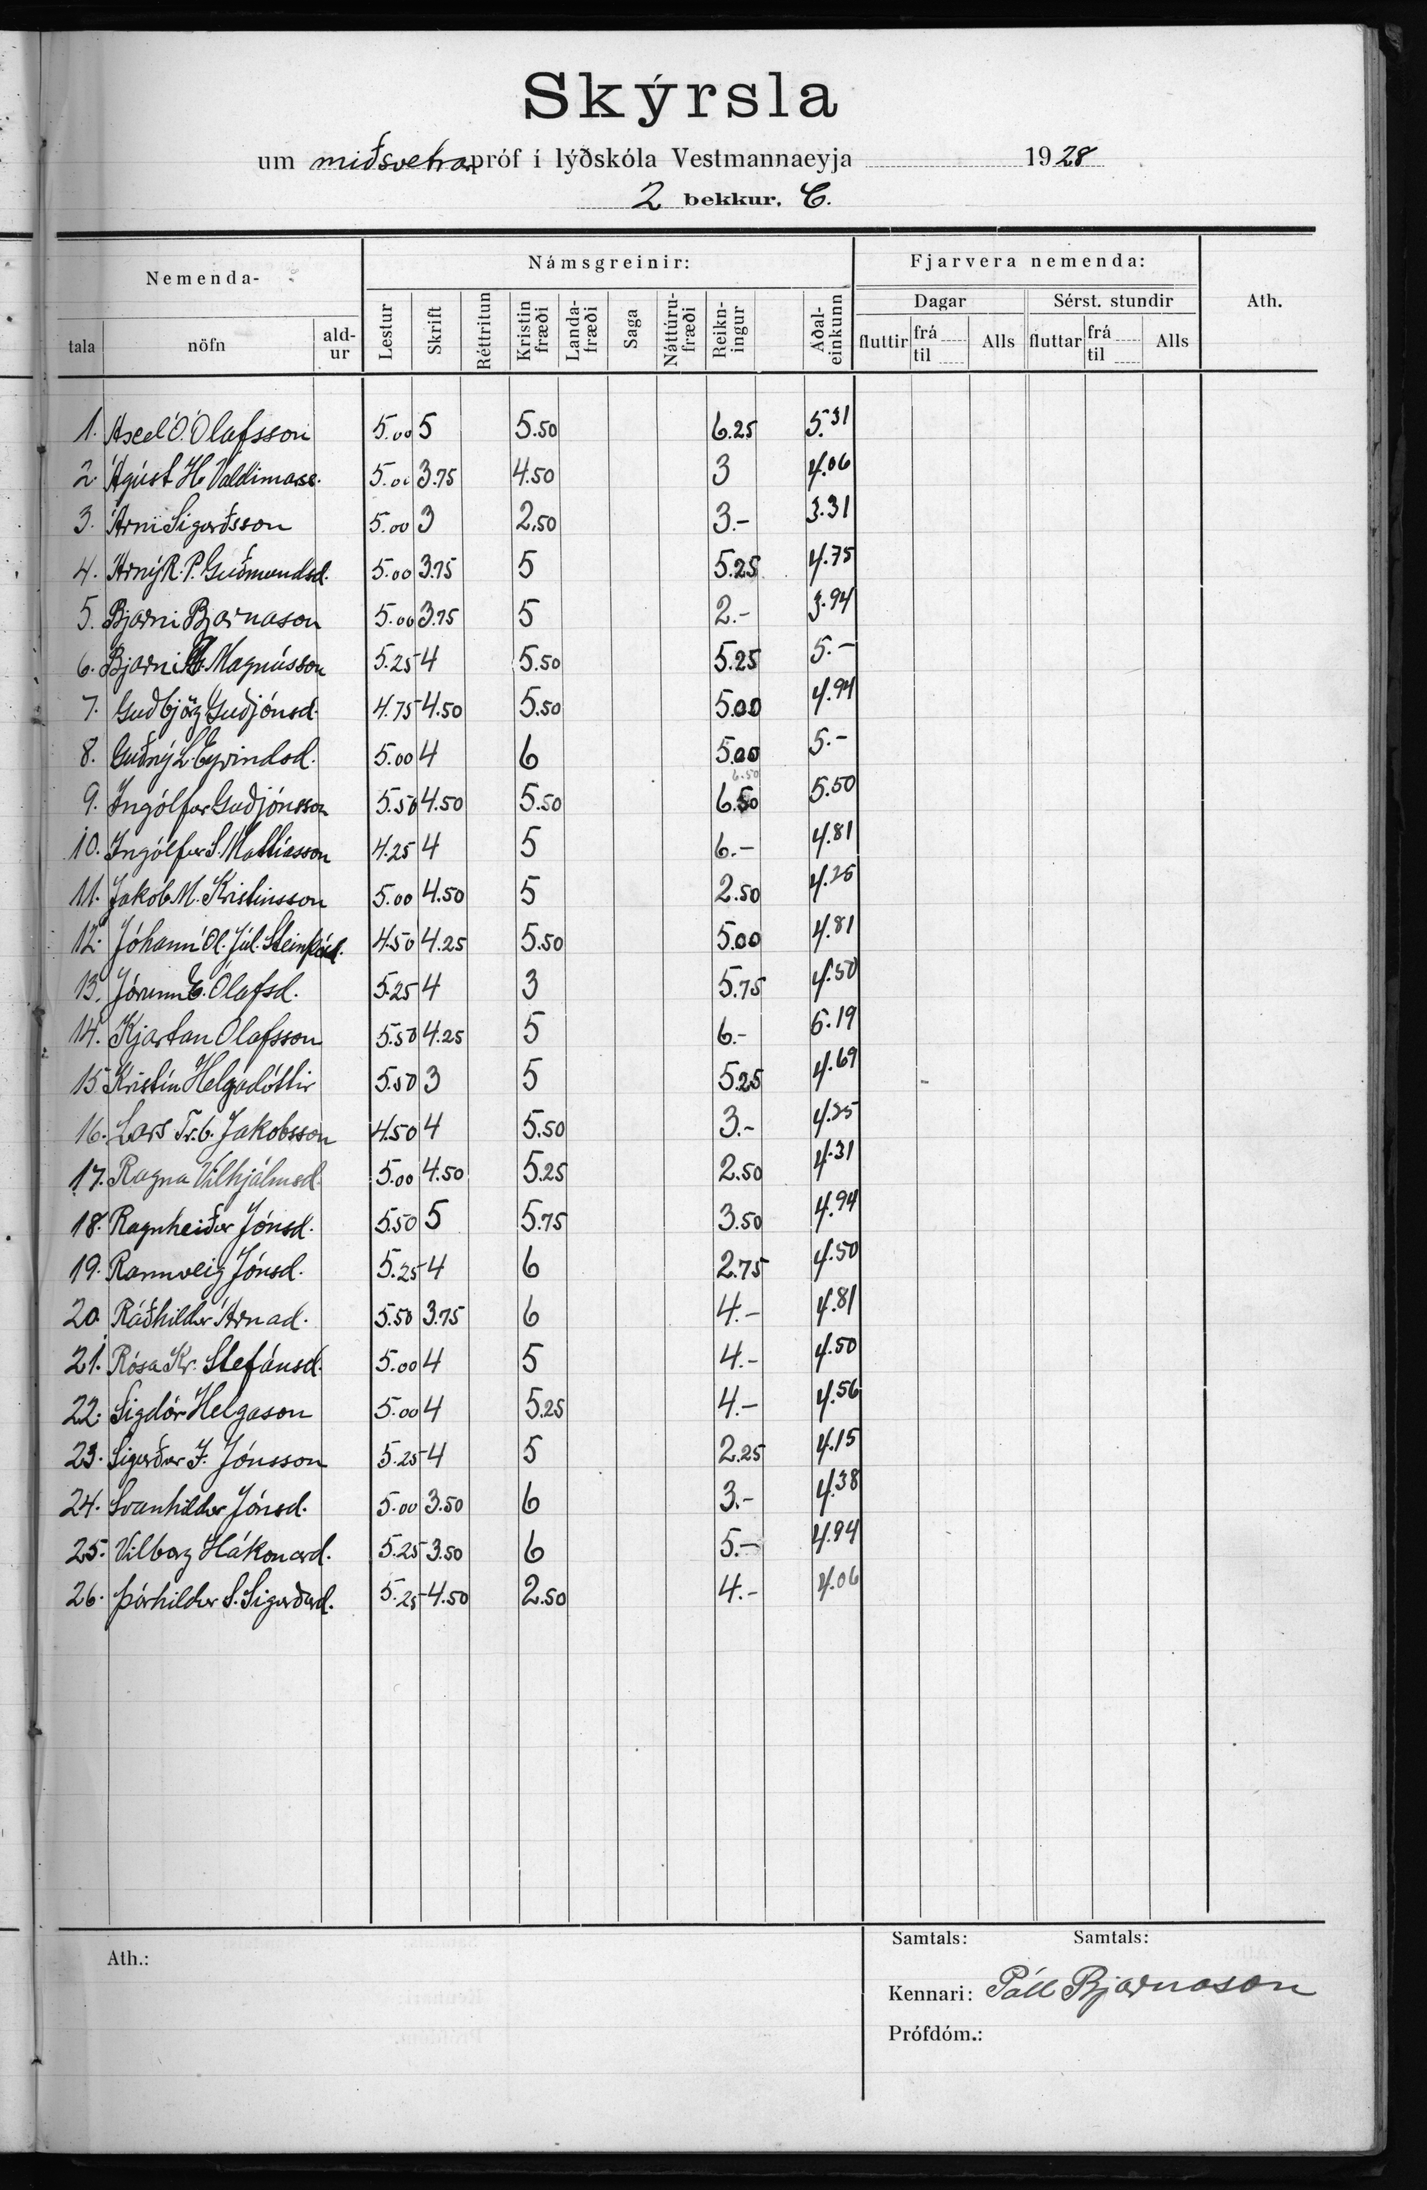 Skýrsla
um miðsvetrar próf í lýðskóla Vestmannaeyja 1928
2 bekkur. C.
Nemenda- Námsgreinir: Fjarvera nemenda: Ath.
tala nöfn ald-ur Lestur Skrift Réttritun Kristin fræði Landa-fræði Saga Náttúru-fræði Reikn-ingur Aðal-einkunn Dagar Sérst. stundir
fluttir frá til Alls fluttar frá til Alls
1. Axel Ó. Ólafsson 5.00 5 5.50 6.25 5.31
2. Ágúst H. Valdimarss. 5.00 3.75 4.50 3 4.06
3. Árni Sigurðsson 5.00 3 2.50 3.- 3.31
4. Árný R. P. Guðmundsd. 5.00 3.75 5 5.25 4.75
5. Bjarni Bjarnason 5.00 3.75 5 2.- 3.94
6. Bjarni Magnússon 5.25 4 5.50 5.25 5.-
7. Guðbjörg Guðjónsd. 4.75 4.50 5.50 5.00 4.94
8. Guðný L. Eyvindsd. 5.00 4 6 5.00 5.-
6.50
9. Ingólfur Guðjónsson 5.50 4.50 5.50 6.50 5.50
10. Ingólfur S. Mattíasson 4.25 4 5 6.- 4.81
11. Jakob M. Kristinsson 5.00 4.50 5 2.50 4.25
12. Jóhann Ól. Júl. 4.50 4.25 5.50 5.00 4.81
13. Jórunn E. Ólafsd. 5.25 4 3 5.75 4.50
14. Kjartan Ólafsson 5.50 4.25 5 6.- 5.19
15 Kristín Helgadóttir 5.50 3 5 5.25 4.69
16. Lárs Tr. G. Jakobsson 4.50 4 5.50 3.- 4.25
17. Ragna Vilhjálmsd. 5.00 4.50 5.25 2.50 4.31
18. Ragnheiður Jónsd. 5.50 5 5.75 3.50 4.94
19. Rannveig Jónsd. 5.25 4 6 2.75 4.50
20 Ráðhildur Árnad. 5.50 3.75 6 4.- 4.81
21. Rósa Kr. Stefánsd. 5.00 4 5 4.- 4.50
22. Sigdór Helgason 5.00 4 5.25 4.- 4.56
23. Sigurður J. Jónsson 5.25 4 5 2.25 4.15
24. Svanhildur Jónsd. 5.00 3.50 6 3.- 4.38
25. Vilborg Hákonard. 5.25 3.50 6 5.- 4.94
26. Þórhildur S. Sigurðard. 5.25 4.50 2.50 4.- 4.06
Samtals: Samtals:
Ath.:
Kennari: Páll Bjarnason
Prófdóm.: